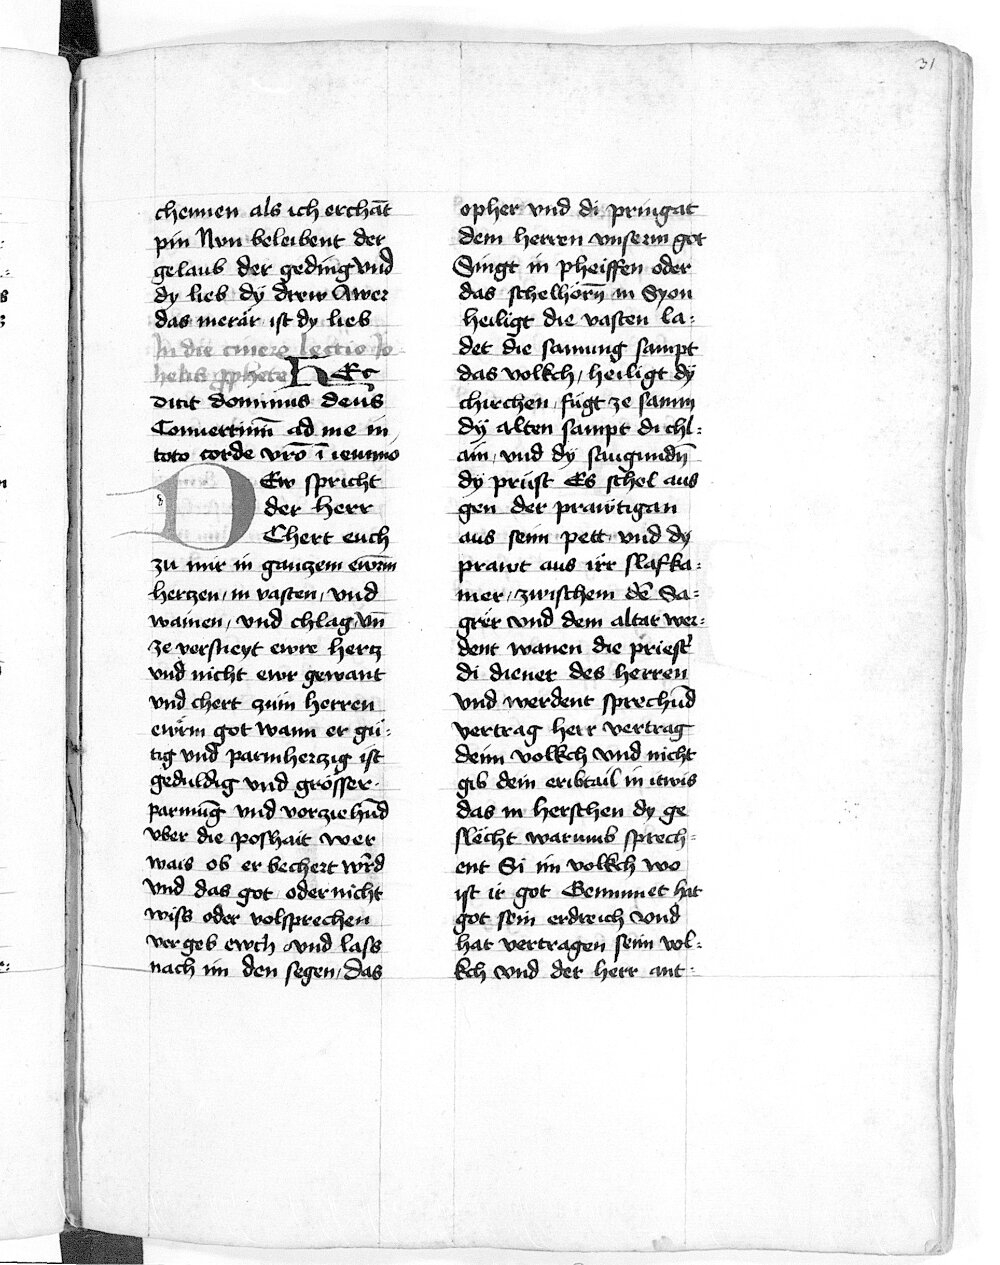 31
chennen als ich erchāt
pin Nvn beleibent der
gelaub der geding vnd
dy lieb dÿ drew Awer
das merär ist dy lieb
In die cinerꝫ lectio Jo
helis ꝓphete HEc
dicit dominus deus
Conuertimī ad me in
toto corde vr̄o ī ieiunio
DEw spricht
der herr
Chert euch
zu mir in ganczem ewrm̄
herczen, in vasten, vnd
wainen, vnd chlag vn̄
ze versneyt ewre hercz
vnd nicht ewr gewant
vnd chert zům herren
ewrm got wann er gü-
tig vnd parmherczig ist
geduldig vnd grösser
parmūg vnd vorziehūd
vber die poshait wer
wais ob er bechert wīrd
vnd das got oder nicht
wiss oder volsprechen
vergeb ewch vnd lass
nach im den segen, das
opher vnd di pringat
dem herren vnserm got
Singt in pheiffen oder
das schelhörn̄ in Syon
heiligt die vasten la-
det die samung sampt
das volkch, heiligt dÿ
chirchen, fügt ze samm
dÿ alten sampt di chl-
ain, vnd dy saugundn̄
dy prüst Es schol aus
gen der prawtigan
aus seim pett vnd dy
prawt aus irr slafka-
mer, zwischem dē Sa-
grer vnd dem altar wer-
dent wanen die priestˀ
di diener des herren
vnd werdent sprechūd
vertrag herr vertrag
deim volkch vnd nicht
gib dein eribtail in itwis
das in herschen dy ge
slächt warumb sprech-
ent Si im volkch wo
ist ir got Gemmnet hat
got sein erdreich vnd
hat vertragen seim vol-
kch vnd der herr ant-